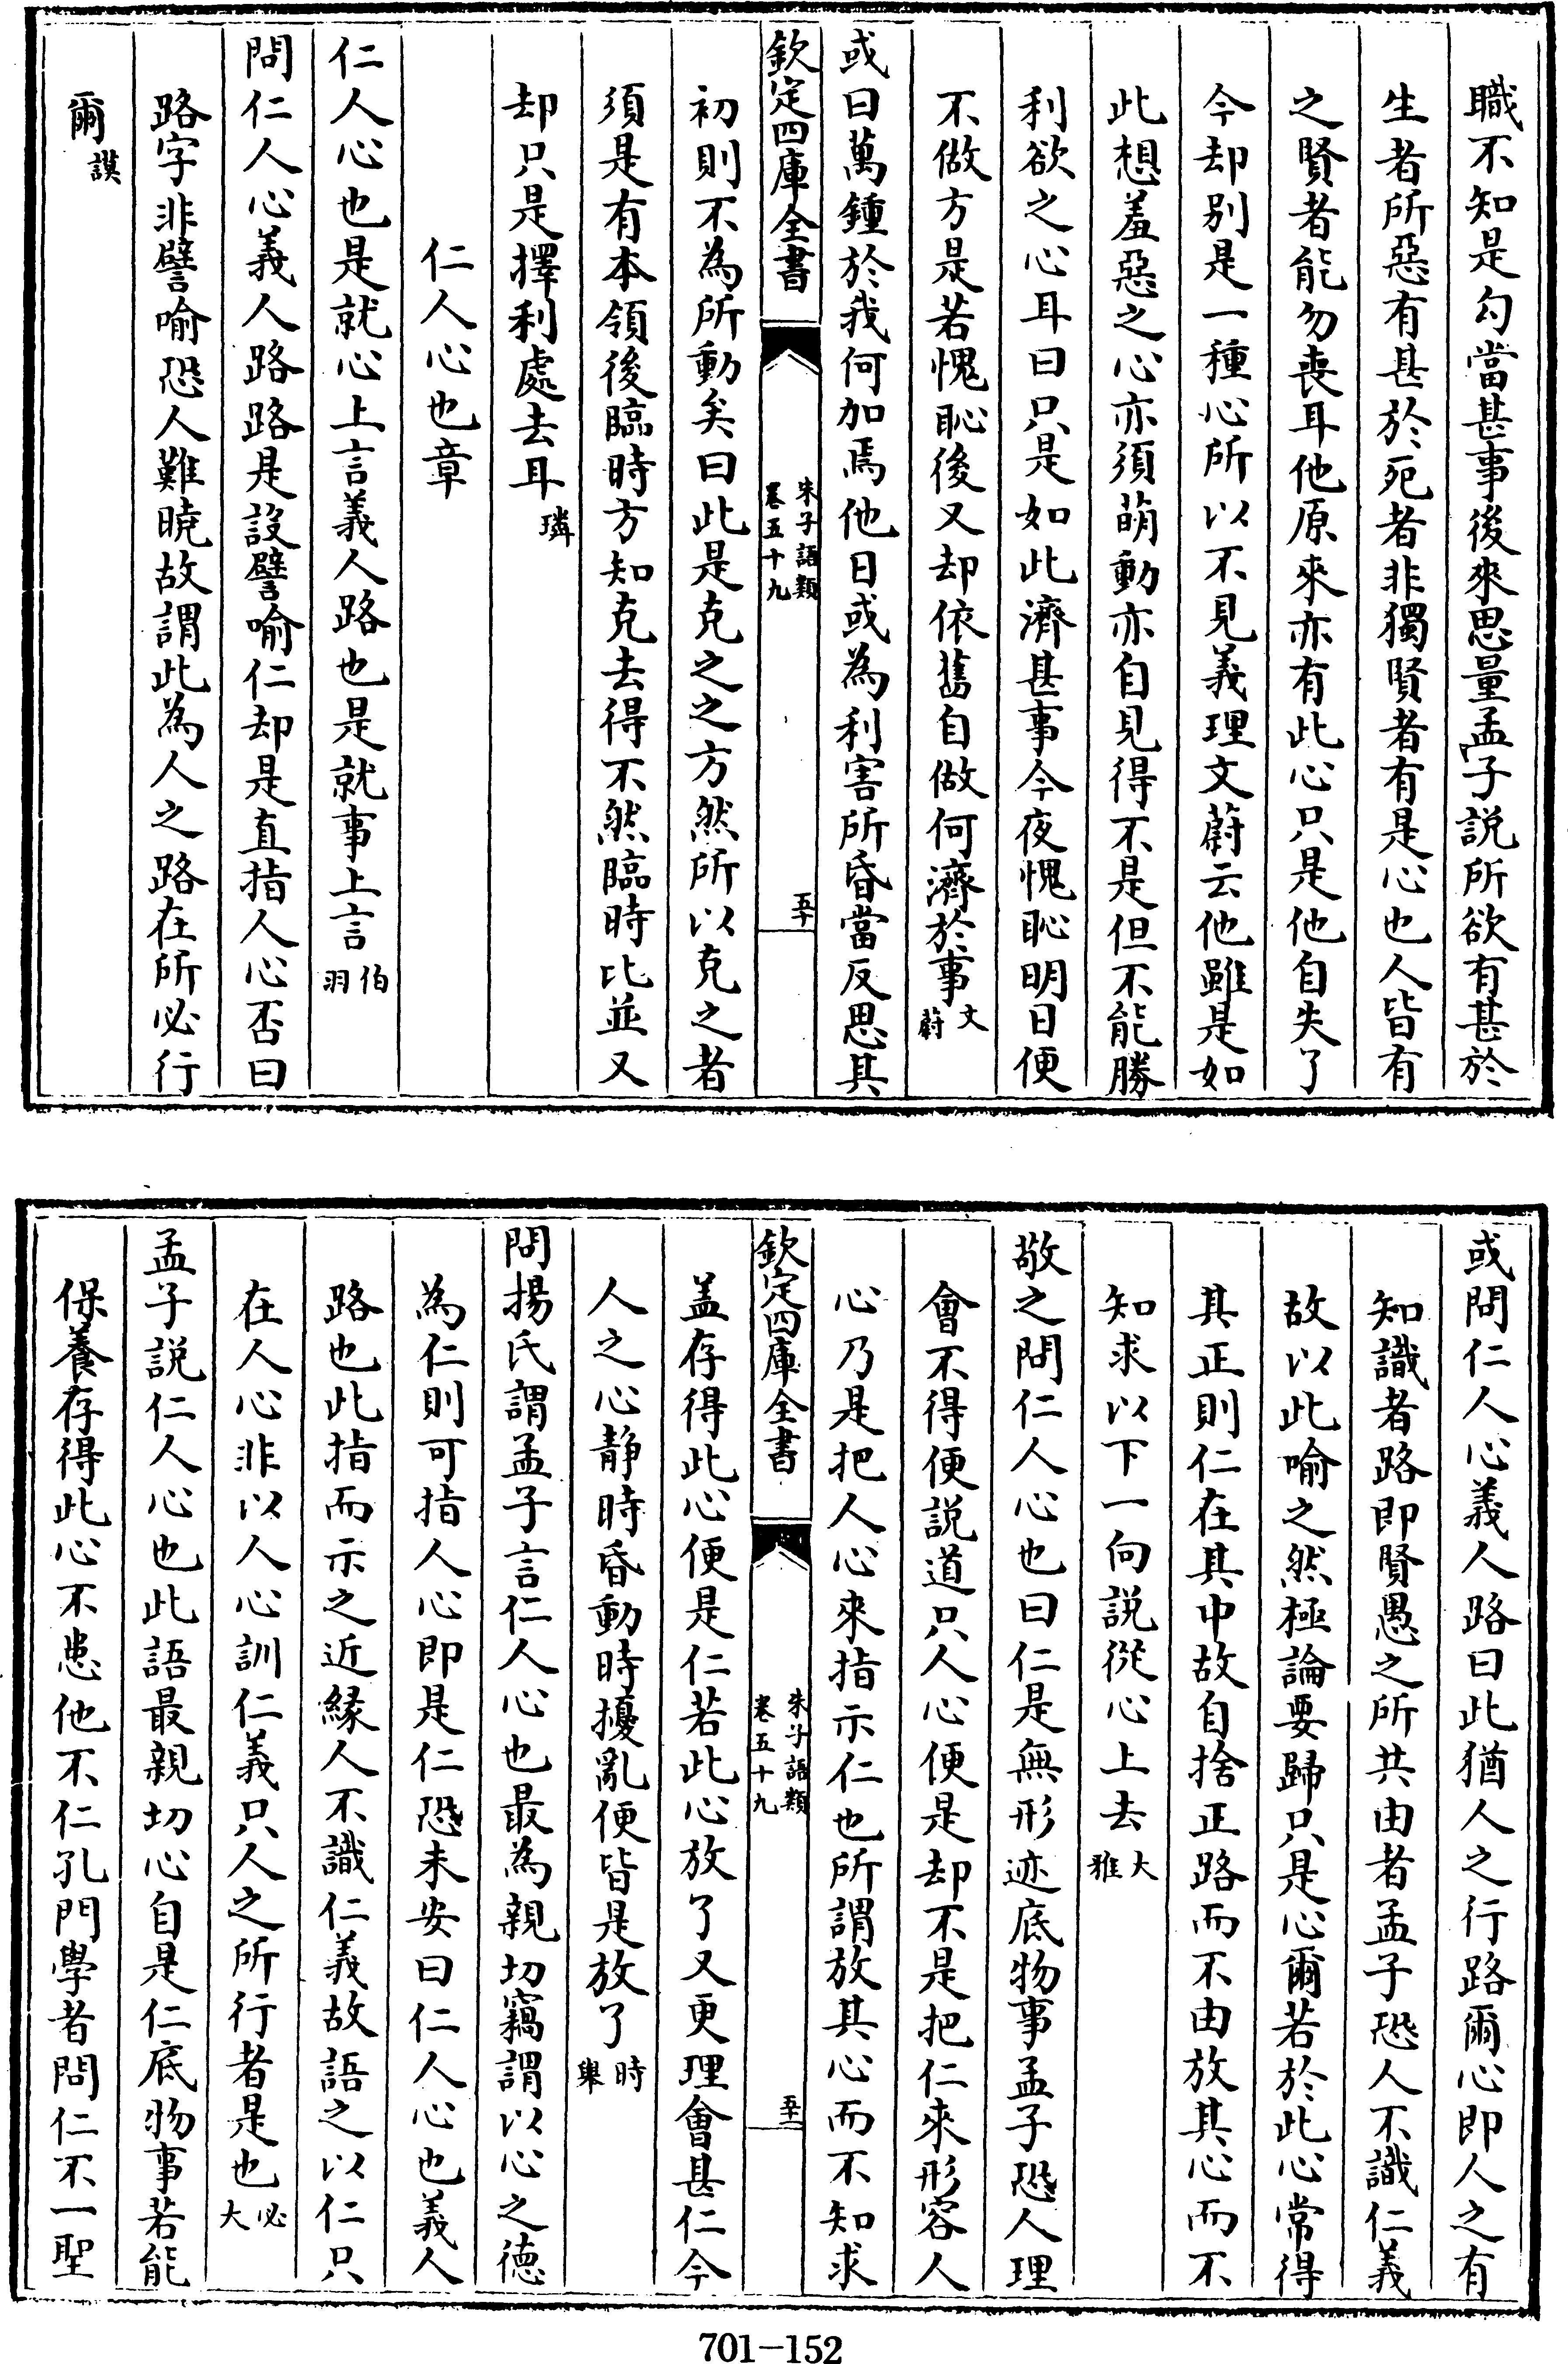 職不知是勾當甚事後來思量孟子説所欲有甚於
生者所惡有甚於死者非獨賢者有是心也人皆有
之賢者能勿喪耳他原來亦有此心只是他自失了
今却别是一種心所以不見義理文蔚云他雖是如
此想羞惡之心亦須萌動亦自見得不是但不能勝
利欲之心耳曰只是如此濟甚事今夜愧恥明日便
不做方是若愧恥後又却依舊自做何濟於事文蔚
或曰萬鍾於我何加焉他日或為利害所昏當反思其
欽定四庫全書
朱子語類
卷五十九
五十
初則不為所動矣曰此是克之之方然所以克之者
須是有本領後臨時方知克去得不然臨時比並又
却只是擇利處去耳璘
仁人心也章
仁人心也是就心上言義人路也是就事上言伯羽
問仁人心義人路路是設譬喻仁却是直指人心否曰
路字非譬喻恐人難曉故謂此為人之路在所必行
爾謨
或問仁人心義人路曰此猶人之行路爾心即人之有
知識者路即賢愚之所共由者孟子恐人不識仁義
故以此喻之然極論要歸只是心爾若於此心常得
其正則仁在其中故自捨正路而不由放其心而不
知求以下一向説從心上去大雅
敬之問仁人心也曰仁是無形迹底物事孟子恐人理
會不得便説道只人心便是却不是把仁來形容人
心乃是把人心來指示仁也所謂放其心而不知求
欽定四庫全書
朱子語類
卷五十九
五十一
盖存得此心便是仁若此心放了又更理會甚仁今
人之心静時昏動時擾亂便皆是放了時舉
問揚氏謂孟子言仁人心也最為親切竊謂以心之德
為仁則可指人心即是仁恐未安曰仁人心也義人
路也此指而示之近緣人不識仁義故語之以仁只
在人心非以人心訓仁義只人之所行者是也必大
孟子説仁人心也此語最親切心自是仁底物事若能
保養存得此心不患他不仁孔門學者問仁不一聖
701—152